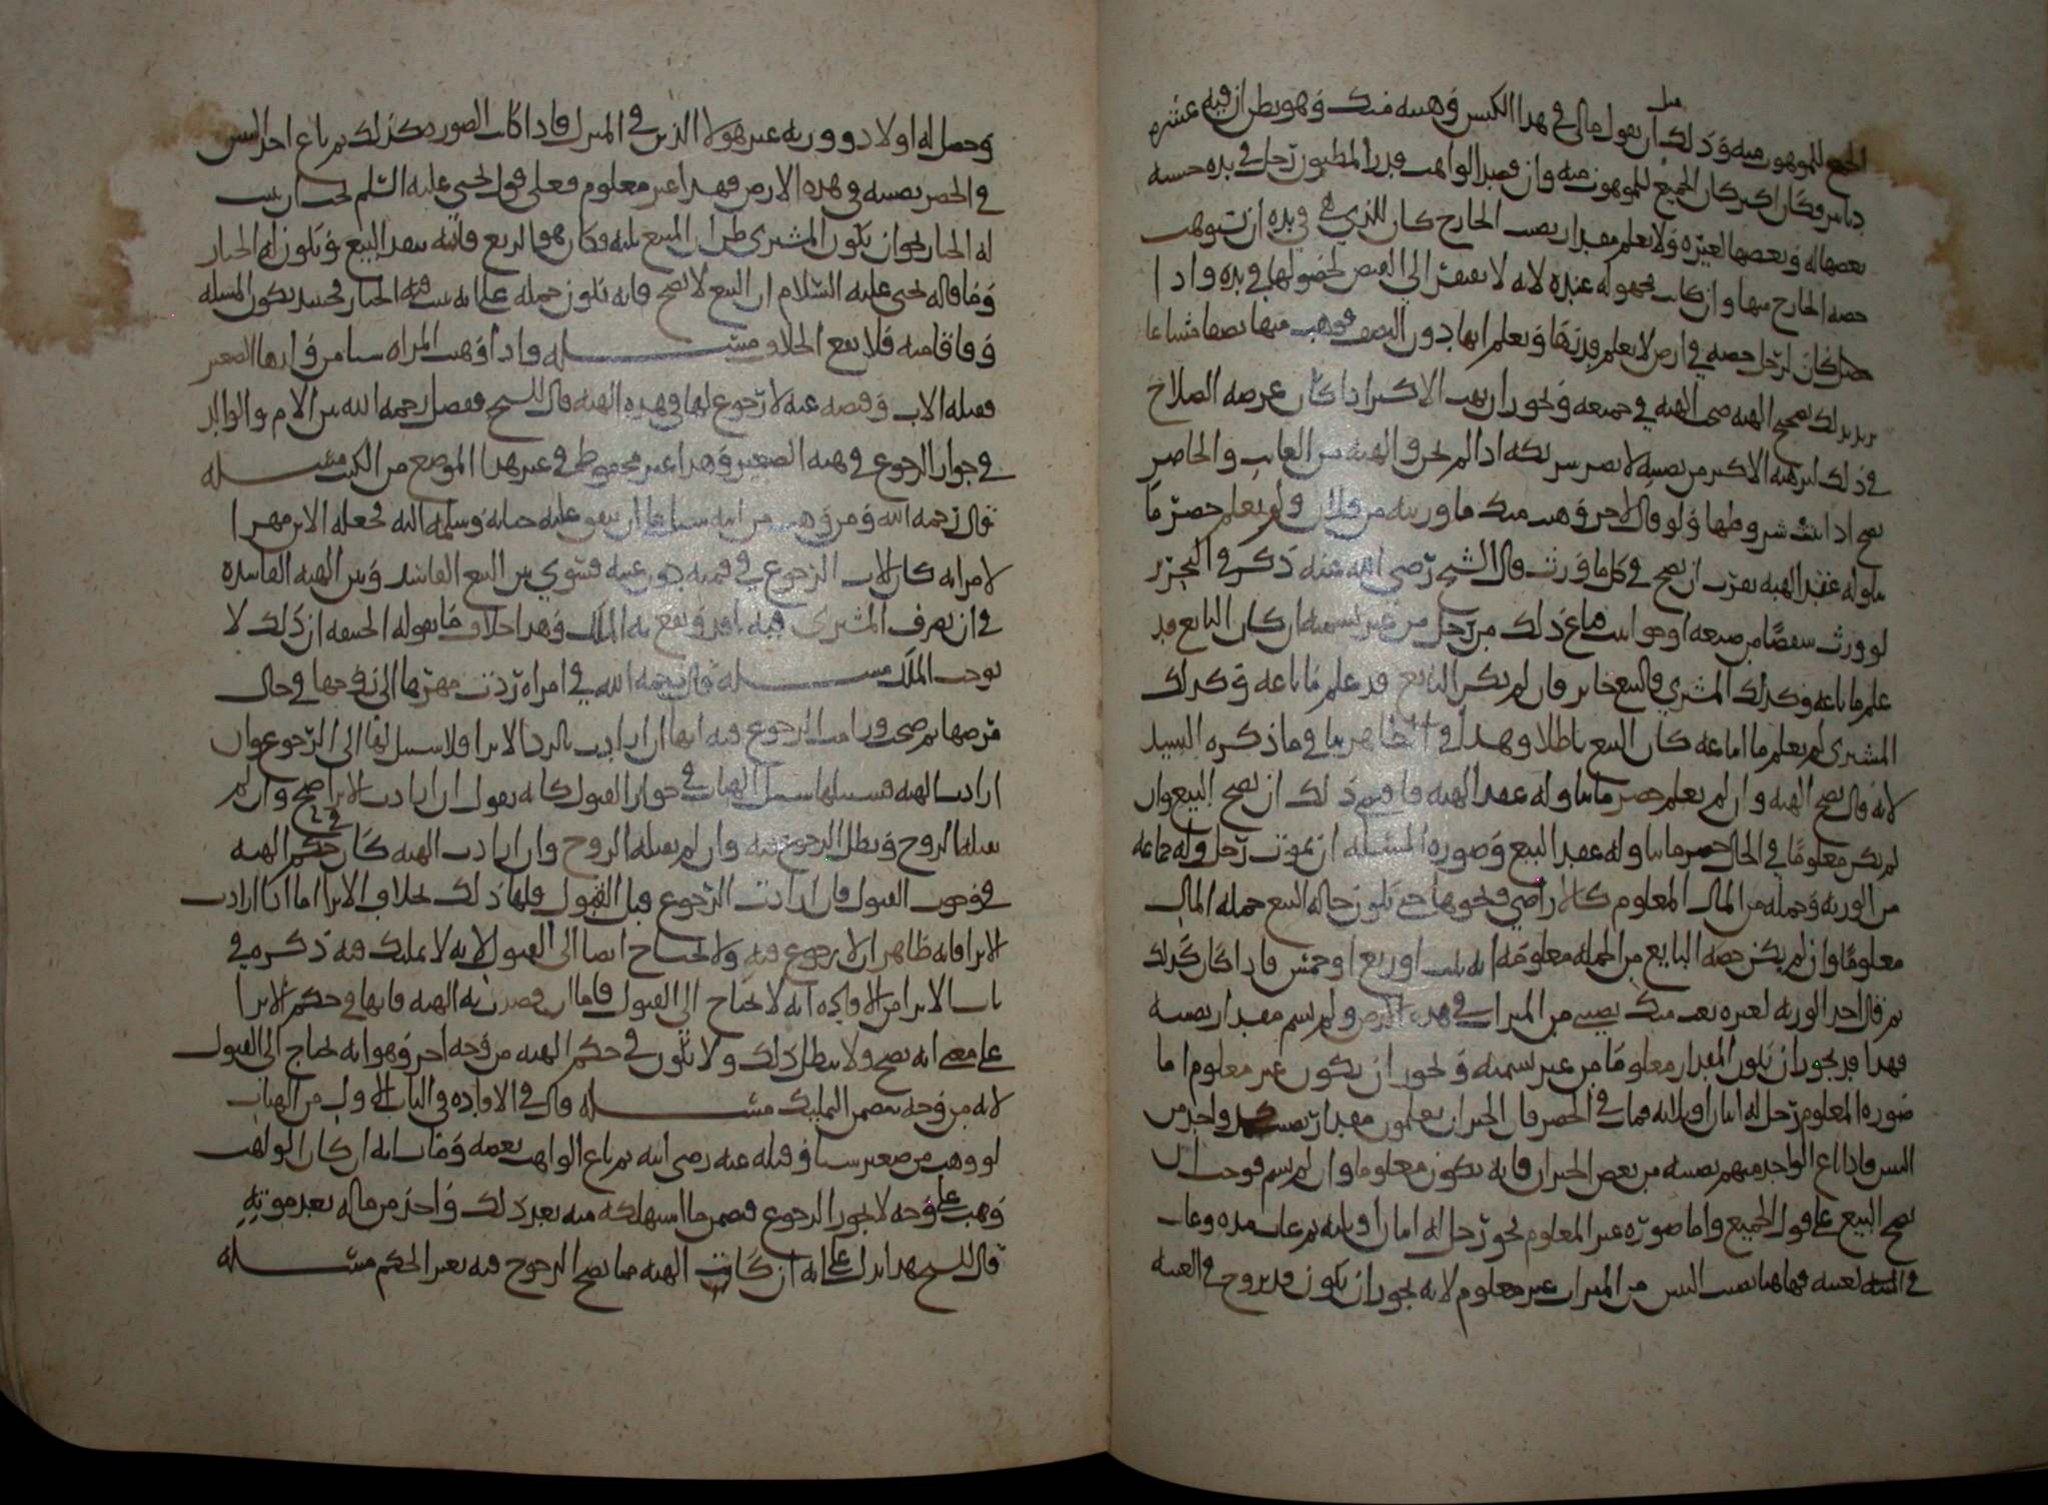 الجميع للموهوب منه وذلك مثل أن يقول مالي في هذا الكيس وهبته منك وهو يظن ان فيه عشره
دنانير وكان اكثر كان الجميع للموهوب منه وان قصد الواهب قدر المظنون رجل في يده حسبه
بعضها له وبعضها لغيره ولا يعلم مقدار نصيب الخارج كان للذي هي في يده ان يستوهب
حصه الخارج منها وان كانت مجهوله عنده لانه لا يفتقر الى القبض لحصولها في يده واذا
كان لرجل حصه في ارض لا يعلم قدرها ويعلم انها دون النصف فوهب منها نصفا مشاعا
يريد بذلك تصحيح الهبه صحت الهبه في جميعه ويجوز ان يهب الاكثر اذا كان غرضه الصلاح
في ذلك لان هبه الاكثر من نصيبه لا تضر شريكه اذا لم يجز والهبه من الغايب والحاضر
تصح اذا تمت شروطها ولو قال لاخر وهبت منك ما ورثته من فلان ولم يعلم حصر ما
تناوله عقد الهبه يقرب ان يصح في كل ما ورث قال الشيخ رضي الله عنه ذكر في التحرير
لو ورث شقصا من ضيعه او حوانيت فباع ذلك من رجل من غير تسميه ان كان البايع قد
علم ما باعه وكذلك المشتري فالبيع جايز فان لم يكن البايع قد علم ما باعه وكذلك
المشتري لم يعلم ما ابتاعه كان البيع باطلا وهذا في الظاهر ينافي ما ذكره السيد
لانه قال تصح الهبه وان لم يعلم حصر ما تناوله عقد الهبه فاقيم ذلك ان يصح البيع وان
لم يكن معلوما في الحال حصر ما تناوله عقد البيع وصوره المسئله ان يموت رجل وله جماعه
من الورثه وجمله من المال المعلوم كالاراضي ونحوها حتى تكون حاله البيع جمله المال
معلوما وان لم يكن حصه البايع من الجمله معلومه انه ثلث او ربع او خمس فاذا كان كذلك
ثم قال احد الورثه لغيره بعت منك نصيبي من الميراث في هذه الارض ولم يسم مقدار نصيبه
فهذا قد يجوز ان يكون المقدار معلوما من غير تسميه ويجوز ان يكون غير معلوم اما
صوره المعلوم رجل له ابنان او ثلاثه فمات في الحضر فان الجيران يعلمون مقدار نصيب كل واحد من
البنين فاذا باع الواحد منهم نصيبه من بعض الجيران فانه يكون معلوما وان لم يسم فوجب ان
يصح البيع على قول الجميع واما صوره غير المعلوم نحو رجل له ابنان او ثلاثه ثم غاب مده ومات
في الغيبه فهاهنا نصيب البنين من الميراث غير معلوم لانه يجوز ان يكون قد تزوج في الغيبه
وحصل له اولاد وورثه غير هولا الذين في المنزل فاذا كانت الصوره كذلك ثم باع احد البنين
في الحضر نصيبه في هذه الارض فهذا غير معلوم فعلى قول يحيى عليه السلم يجب ان يثبت
له الخيار لجواز ان يكون المشتري ظن ان المبيع ثلثه فكان هو الربع فانه ينعقد البيع ويكون له الخيار
وما قاله يحيى عليه السلام ان البيع لا يصح فانه يكون حمله على انه يثبت فيه الخيار فحينئذ يكون المسئله
وفاقا منه فلا يقع الخلاف مسئله واذا وهبت المراه شيا من ابنها الصغير
فقبله الاب وقبضه عنه لا رجوع لها في هذه الهبه قال الشيخ ففصل رحمه الله بين الام والوالد
في جواز الرجوع في هبه الصغير وهذا غير محفوظ في غير هذا الموضع من الكتب مسئله
قال رحمه الله ومن وهب من ابنه شيا على ان ينفق عليه حياته وسلمه اليه فجعله الابن مهرا
لامراته كان للاب الرجوع في قيمته دون عينه فسوى بين البيع الفاسد وبين الهبه الفاسده
في ان تصرف المشتري فيه نافذ ويقع به الملك وهذا خلاف ما يقوله الحنفيه ان ذلك لا
يوجب الملك مسئله قال رحمه الله في امراه ردت مهرها الى زوجها في حال
مرضها ثم صحت ورامت الرجوع فيه انها ان ارادت بالرد الابرا فلا سبيل لها الى الرجوع وان
ارادت الهبه فسبيلها سبيل الهبات في جواز القبول كانه يقول ان ارادت الابرا صح وان لم
يقبله الزوج وبطل الرجوع فيه وان لم يقبله الزوج وان ارادت الهبه كان في حكم الهبه
في وجوب القبول فان ارادت الرجوع قبل القبول فلها ذلك بخلاف الابرا اما اذا ارادت
الابرا فانه ظاهر ان لا رجوع فيه ولا تحتاج ايضا الى القبول لانه لا تمليك فيه ذكره في
باب الابرا من الافاده انه لا يحتاج الى القبول فاما ان قصدت به الهبه فانها في حكم الابرا
على معنى انه يصح ولا يبطل ذلك ولا يكون في حكم الهبه من وجه اخر وهو انه يحتاج الى القبول
لانه من وجه يتضمن التمليك مسئله قال في الافاده في الباب الاول من الهبات
لو وهب من صغير شيا وقبله عنه رضي الله ثم باع الواهب بعضه ومات انه ان كان الواهب
وهب على وجه لا يجوز الرجوع فيضمن ما استهلكه منه بعد ذلك واخذ من ماله بعد موته
قال الشيخ هذا يدل على انه ان كانت الهبه مما يصح الرجوع فيه بغير الحكم مسئله